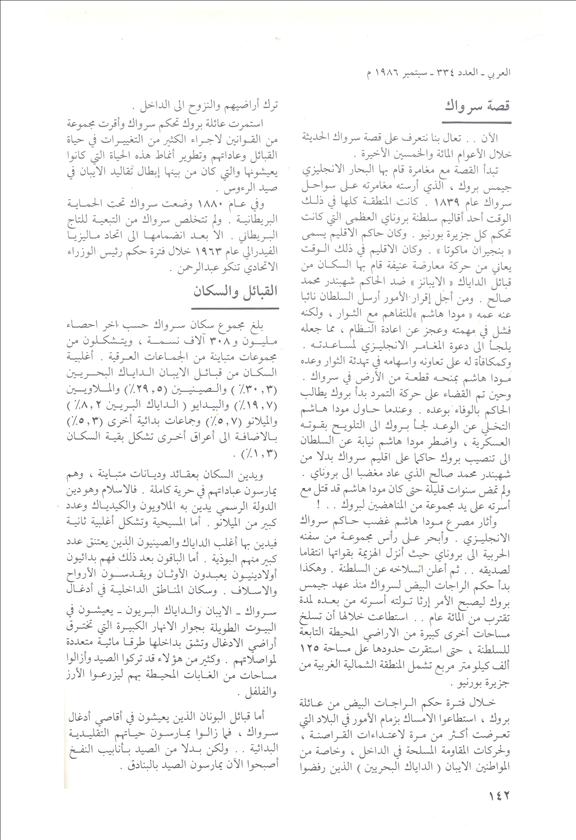 العربي ـ العدد ٣٣٤ ـ سبتمبر ١٩٨٦ م
قصة سرواك
الآن . . تعال بنا نتعرف على قصة سرواك الحديثة
خلال الأعوام المائة والخمسين الأخيرة .
تبدأ القصة مع مغامرة قام بها البحار الانجليزي
جيمس بروك ، الذي أرسته مغامرته على سواحل
سرواك عام ١٨٣٩ . كانت المنطقة كلها في ذلك
الوقت أحد أقاليم سلطنة بروناي العظمى التي كانت
تحكم كل جزيرة بورنيو . وكان حاكم الاقليم يسمى
« بنجيران ماكوتا » . وكان الاقليم في ذلك الوقت
يعاني من حركة معارضة عنيفة قام بها السكان من
قبائل الداياك « الايبانز » ضد الحاكم شهبندر محمد
صالح . ومن أجل إقرار الأمور أرسل السلطان نائبا
عنه عمه « مودا هاشم » للتفاهم مع الثوار ، ولكنه
فشل في مهمته وعجز عن اعادة النظام ، مما جعله
يلجأ الى دعوة المغامر الانجليزي لمساعدته .
وكمكافأة له على تعاونه واسهامه في تهدئة الثوار وعده
مودا هاشم بمنحه قطعة من الأرض في سرواك .
وحين تم القضاء على حركة التمرد بدأ بروك يطالب
الحاكم بالوفاء بوعده . وعندما حاول مودا هاشم
التخلي عن الوعد لجأ بروك الى التلويح بقوته
العسكرية ، واضطر مودا هاشم نيابة عن السلطان
الى تنصيب بروك حاكما على اقليم سرواك بدلا من
شهبندر محمد صالح الذي عاد مغضبا الى بروناي .
ولم تمض سنوات قليلة حتى كان مودا هاشم قد قتل مع
أسرته على يد مجموعة من المناهضين لبروك . . !
وأثار مصرع مودا هاشم غضب حاكم سرواك
الانجليزي . وأبحر على رأس مجموعة من سفنه
الحربية الى بروناي حيث أنزل الهزيمة بقواتها انتقاما
لصديقه . . ثم أعلن انسلاخه عن السلطنة . وهكذا
بدأ حكم الراجات البيض لسرواك منذ عهد جيمس
بروك ليصبح الأمر إرثا تولته أسرته من بعده لمدة
تقترب من المائة عام . . استطاعت خلالها أن تسلخ
مساحات أخرى كبيرة من الاراضي المحيطة التابعة
للسلطنة ، حتى استقرت حدودها على مساحة ١٢٥
ألف كيلو متر مربع تشمل المنطقة الشمالية الغربية من
جزيرة بورنيو .
خلال فترة حكم الراجات البيض من عائلة
بروك ، استطاعوا الامساك بزمام الأمور في البلاد التي
تعرضت أكثر من مرة لاعتداءات القراصنة ،
ولحركات المقاومة المسلحة في الداخل ، وخاصة من
المواطنين الايبان ( الداياك البحريين ) الذين رفضوا
ترك أراضيهم والنزوح الى الداخل .
استمرت عائلة بروك تحكم سرواك وأقرت مجموعة
من القوانين لاجراء الكثير من التغييرات في حياة
القبائل وعاداتهم وتطوير أنماط هذه الحياة التي كانوا
يعيشونها والتي كان من بينها إبطال تقاليد الايبان في
صيد الرءوس .
وفي عام ١٨٨٠ وضعت سرواك تحت الحماية
البريطانية . ولم تتخلص سرواك من التبعية للتاج
البريطاني . الا بعد انضمامها الى اتحاد ماليزيا
الفيدرالي عام ١٩٦٣ خلال فترة حكم رئيس الوزراء
الاتحادي تنكو عبدالرحمن .
القبائل والسكان
يبلغ مجموع سكان سرواك حسب اخر احصاء
مليون و ٣٠٨ آلاف نسمة ، ويتشكلون من
مجموعات متباينة من الجماعات العرقية . أغلبية
السكان من قبائل الايبان الداياك البحريين
(٣٠,٣٪) والصينيين (٢٩,٥٪) والملاويين
(١٩,٧٪) والبيدايو ( الداياك البريين ٨,٢٪)
والميلانو (٥,٧٪) وجماعات بدائية أخرى (٥,٣٪)
بالاضافة الى أعراق أخرى تشكل بقية السكان
(١,٣٪) .
ويدين السكان بعقائد وديانات متباينة ، وهم
يمارسون عباداتهم في حرية كاملة . فالاسلام وهو دين
الدولة الرسمي يدين به الملاويون والكيدياك وعدد
كبير من الميلانو . أما المسيحية وتشكل أغلبية ثانية
فيدين بها أغلب الداياك والصينيون الذين يعتنق عدد
كبير منهم البوذية . أما الباقون بعد ذلك فهم بدائيون
أولادينيون يعبدون الأوثان ويقدسون الأرواح
والاسلاف . وسكان المناطق الداخلية في أدغال
سرواك ـ الايبان والداياك البريون ـ يعيشون في
البيوت الطويلة بجوار الانهار الكبيرة التي تخترق
أراضي الادغال وتشق بداخلها طرقا مائية متعددة
لمواصلاتهم . وكثير من هؤلاء قد تركوا الصيد وأزالوا
مساحات من الغابات المحيطة بهم ليزرعوا الأرز
والفلفل .
أما قبائل البونان الذين يعيشون في أقاصي أدغال
سرواك ، فما زالوا يمارسون حياتهم التقليدية
البدائية . . ولكن بدلا من الصيد بأنابيب النفخ
أصبحوا الآن يمارسون الصيد بالبنادق .
١٤٢